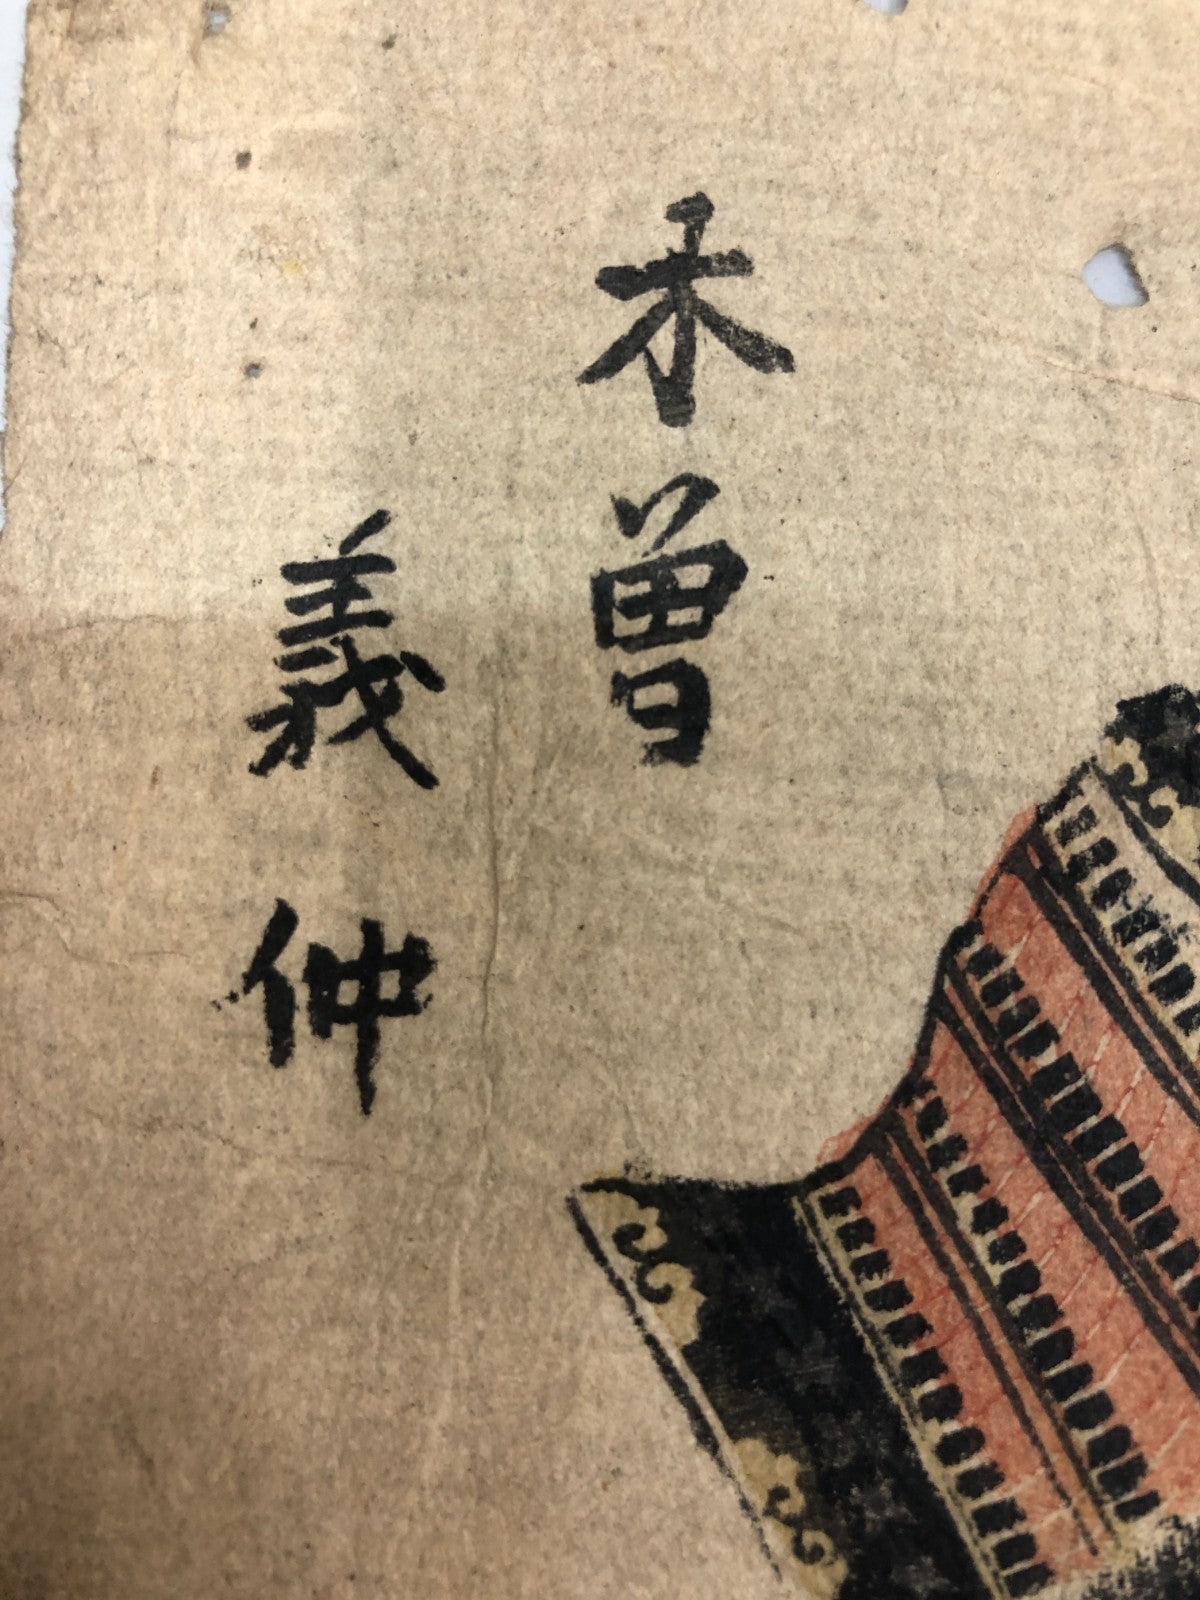 木曽
義仲